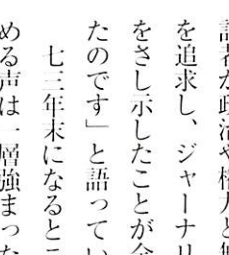 記者が政治や権力と無
を追求し、ジャーナリ
をさし示したことが
たのです」と語ってい
七三年末になると
める声は一層強まった